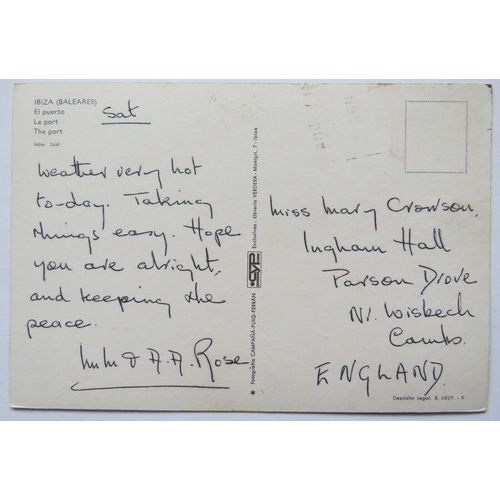 IBIZA (BALEARES)
El puerto
Le port
The port
Núm. 3641
Sat
Weather very hot
to-day. Taking
things easy. Hope
you are alright,
and keeping the
peace.
& A.A. Rose
Fotografía CAMPAÑA-PUIG-FERRÁN
Exclusivas: Librería VERDERA
Miss Mary Crowson,
Ingham Hall
Parson Drove
Nr. Wisbech
Cambs.
ENGLAND.
Depósito Legal. B. 6829. - V